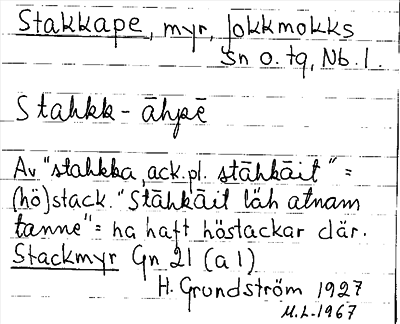 Stakkape, myr, Jokkmokks
sn o. tg, Nb. l.
Stahkk-āhpē
Av "stahkka, ack.pl. stāhkāit" =
(hö)stack. "Stāhkāit läh atnam
tanne" = ha haft höstackar där.
Stackmyr Gn 21 (a 1)
H. Grundström 1927
M.L. 1967